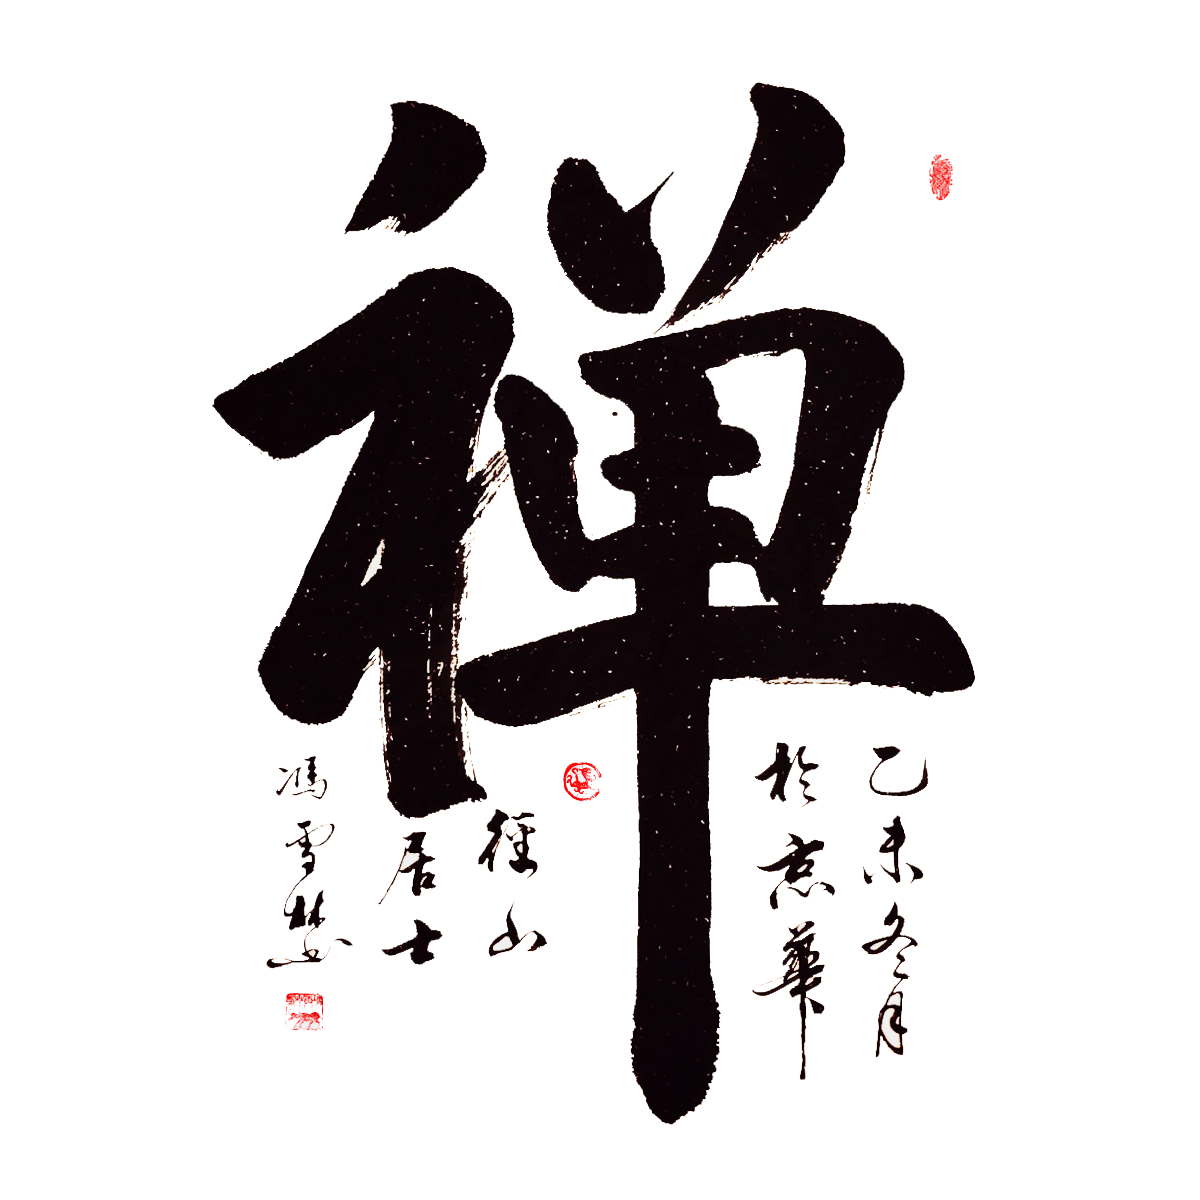 禅
乙未冬月
於京華
徑山
居士
馮雪